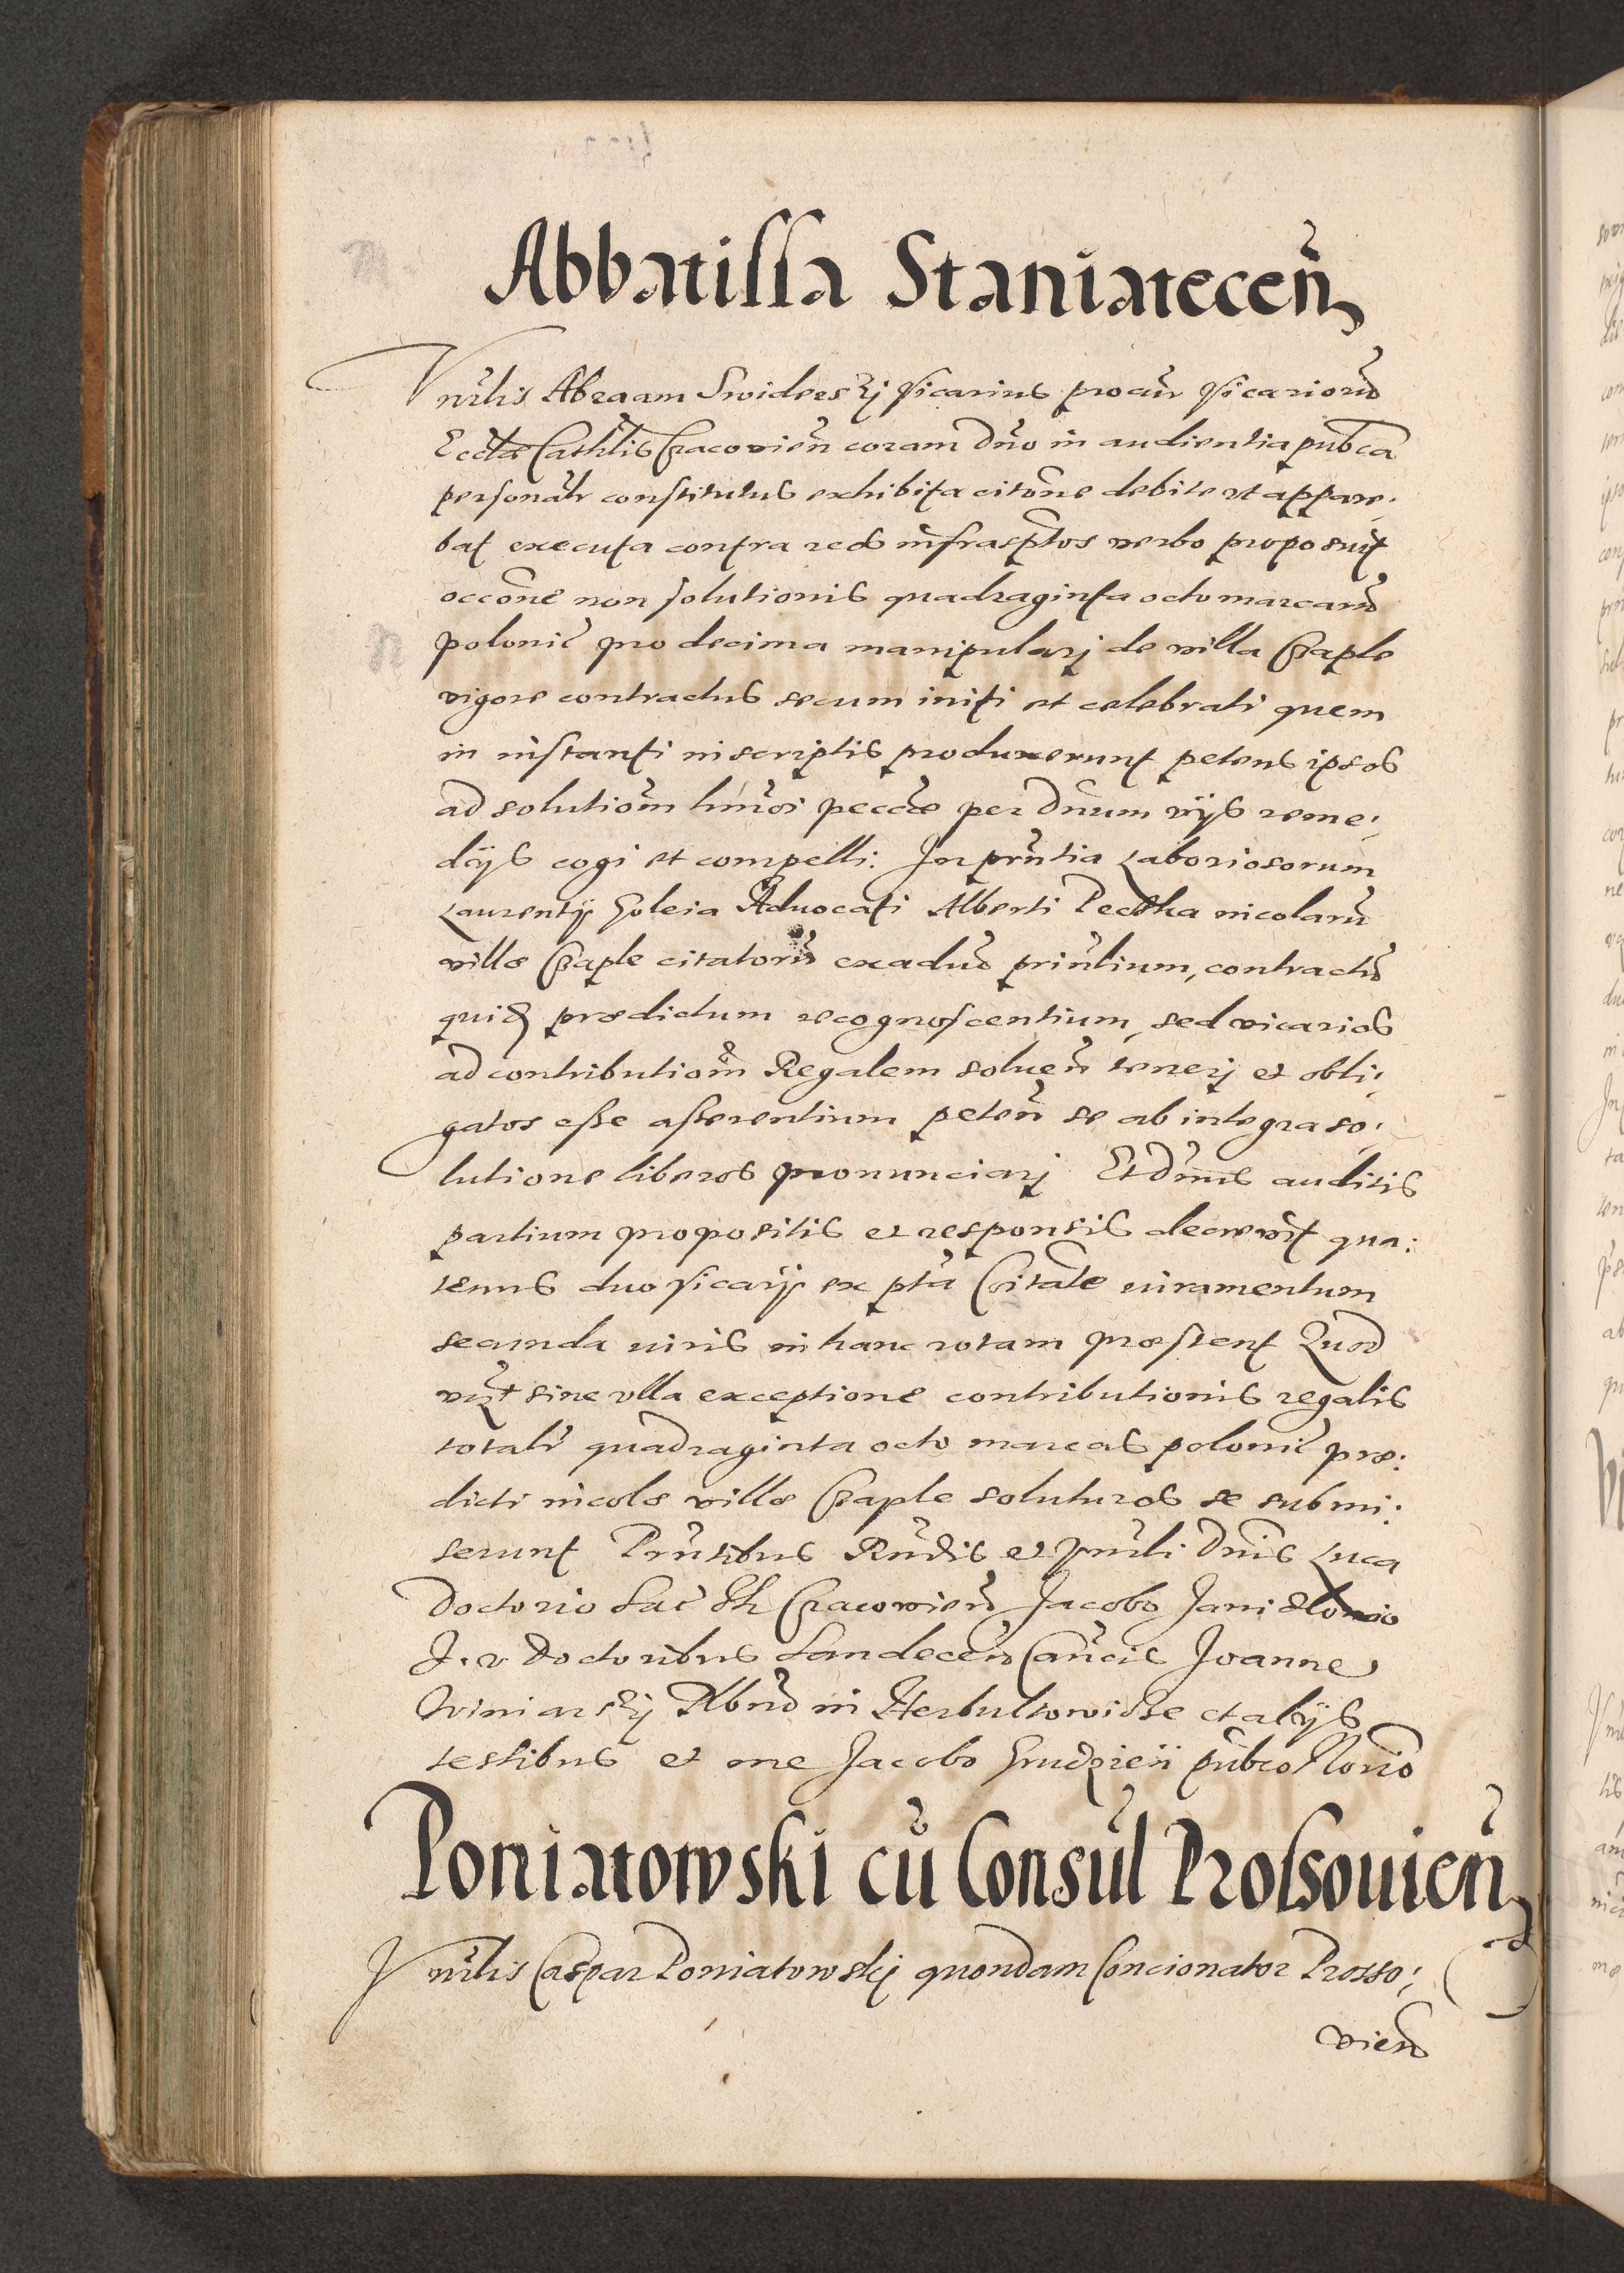 Abbatissa Staniatecen̄
Vn̄rlis Abraam Swider Skj Vicarius procur̄ Vicarioru͂
Eccl̄æ Cathlis Cracovien̄ coram dn̄o in audientia publ̄ca
personalr̄ constitutus exhibita citōne debite vt appare:
bat executa contra reos infrascptos verbo proposuit
occōne non solutionis quadraginta octo marcaru͂
polonic̄ pro decima manipularj de villa Czaple
vigore contractus secum initi et celebrati quem
in instanti in scriptis produxerunt petens ipsos
ad solutiōm hmōi pecc̄æ per dnum vijs reme:
dijs cogi et compelli. In prn̄tia Laboriosorum
Laurentij Goleia Advocati Alberti Pecska incolaru͂
villæ Czaple citatoru͂ ex aduo prin̄tium, contractu͂
quid̄ prædictum recognoscentium, sed vicarios
ad contributiōm Regalem soluen̄ tenerj et obli:
gatos esse asserentium peten̄ se ab integra so:
lutione liberos pronunciarj Et Dnūs auditis
partium propositis et responsis decrevit qua:
tenus duo Vicarij ex ptū Citate iuramentum
secunda iuris in hanc rotam præstent Quod
vz̄t sine vlla exceptione contributionis regalis
totalr̄ quadraginta octo marcas polonic̄ præ:
dicti incolæ villæ Czaple soluturos se submi:
serunt Prn̄tibus Rn̄dis et Vn̄rli Dnis Luca
Doctorio Sac̄ Th Cracovien̄ Jacobo Janidlovio
J. v. Doctoribus Sandecen̄ Can̄cis Joanne
Winiarskj Plbno in Herbultowicze et alijs
testibus et me Jacobo Grudzien̄ publ̄co Notrio
Poniatowski cu͂ Consul̄ Prossovien̄
Vn̄rlis Caspar Poniatowskj quondam Concionator Prosso:
vien̄